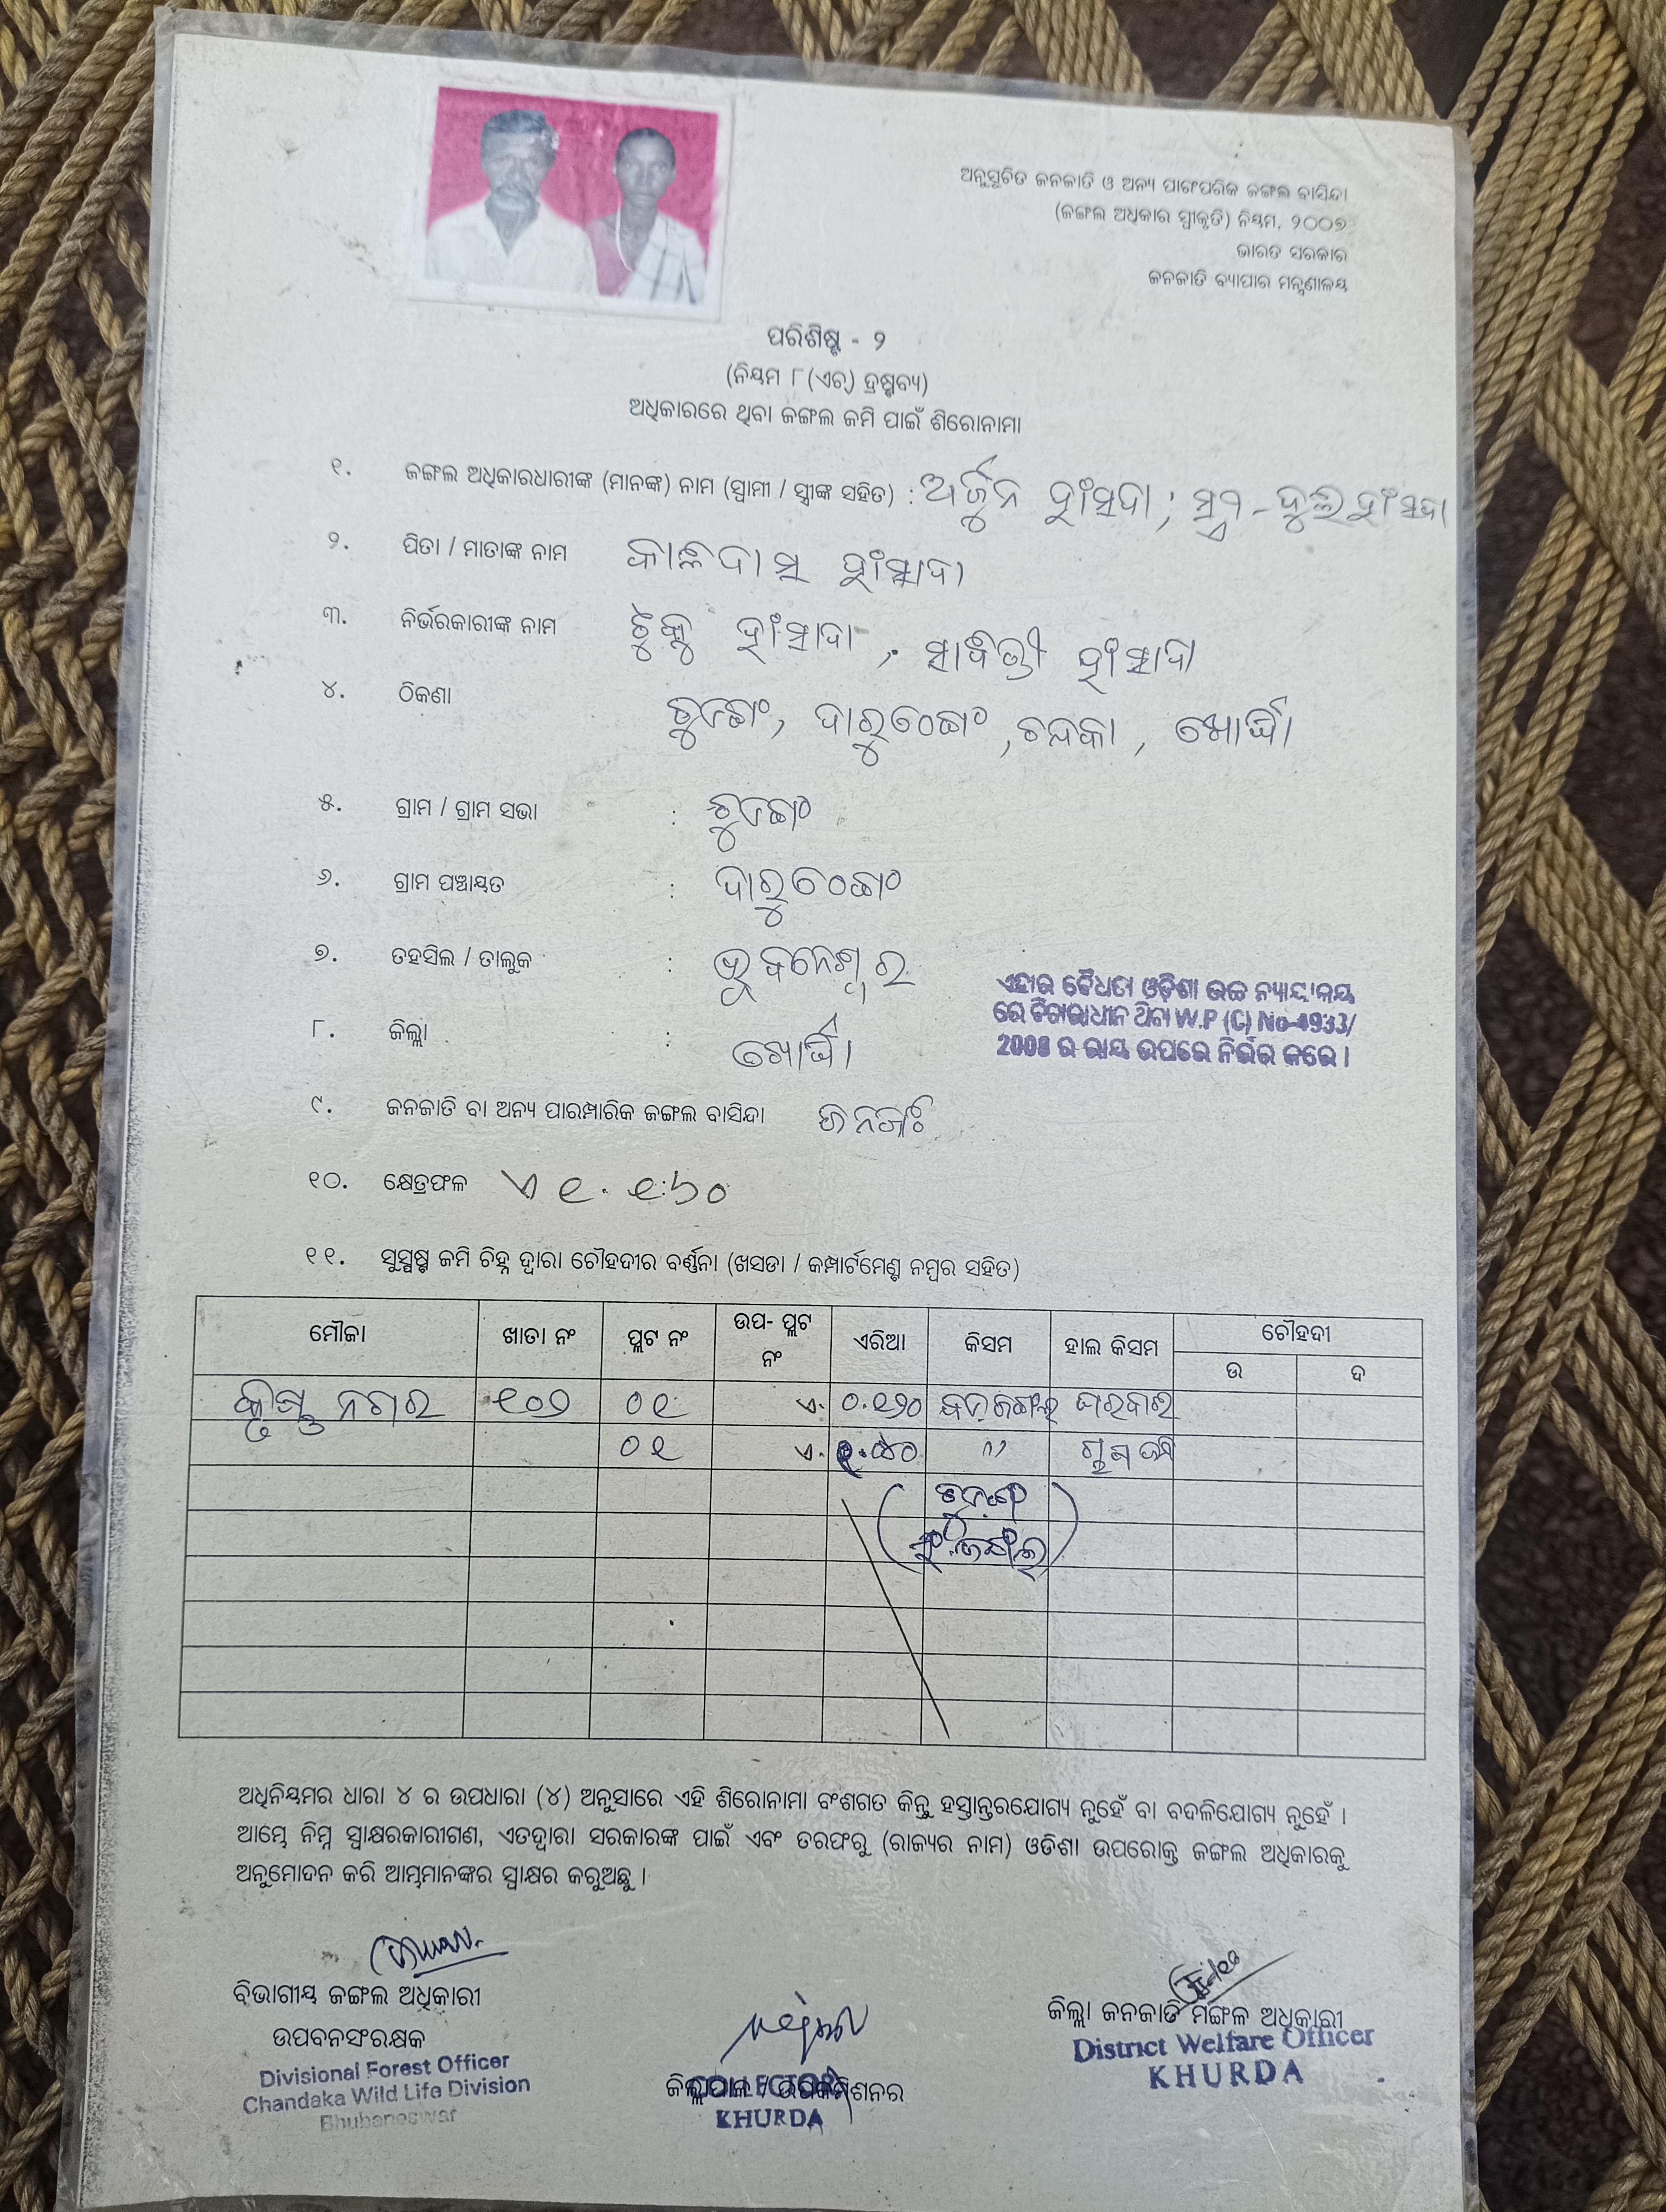 ଅନୁସୂଚିତ ଜନଜାତି ଓ ଅନ୍ୟ ପାରଂପରିକ ଜଙ୍ଗଲ ବାସିନ୍ଦା
(ଜଙ୍ଗଲ ଅଧିକାର ସ୍ୱୀକୃତି) ନିୟମ, ୨୦୦୭
ଭାରତ ସରକାର
ଜନଜାତି ବ୍ୟାପାର ମନ୍ତ୍ରଣାଳୟ
ପରିଶିଷ୍ଟ - ୨
(ନିୟମ ୮(ଏଚ୍) ଦ୍ରଷ୍ଟବ୍ୟ)
ଅଧିକାରରେ ଥିବା ଜଙ୍ଗଲ ଜମି ପାଇଁ ଶିରୋନାମା
୧. ଜଙ୍ଗଲ ଅଧିକାରଧାରୀଙ୍କ (ମାନଙ୍କ) ନାମ (ସ୍ୱାମୀ / ସ୍ତ୍ରୀଙ୍କ ସହିତ) : ଅର୍ଜୁନ ହାଁସଦା; ସ୍ତ୍ରୀ-ଦୁଲ ହାଁସଦା
୨. ପିତା / ମାତାଙ୍କ ନାମ କାଳଦାସ ହାଁସ୍ଦା
୩. ନିର୍ଭରକାରୀଙ୍କ ନାମ ଟୁକୁ ହାଁସାଦା, ସାବିତ୍ରୀ ହାଁସାଦା
୪. ଠିକଣା ଚୁଡଙ୍ଗ, ଦାରୁଠେଙ୍ଗ, ଚନ୍ଦକା, ଖୋର୍ଦ୍ଧା
୫. ଗ୍ରାମ / ଗ୍ରାମ ସଭା :
୬. ଗ୍ରାମ ପଞ୍ଚାୟତ : ଦାରୁଠେଙ୍ଗ
୭. ତହସିଲ / ତାଲୁକ : ଭୁବନେଶ୍ୱର
୮. ଜିଲ୍ଲା : ଖୋର୍ଦ୍ଧା
ଏହାର ବୈଧତା ଓଡ଼ିଶା ଉଚ୍ଚ ନ୍ୟାୟାଳୟ
ରେ ବିଚାରାଧୀନ ଥିବା W.P (C) No-4933/
2008 ର ରାୟ ଉପରେ ନିର୍ଭର କରେ।
୯. ଜନଜାତି ବା ଅନ୍ୟ ପାରମ୍ପାରିକ ଜଙ୍ଗଲ ବାସିନ୍ଦା ଜନଜାତି
୧୦. କ୍ଷେତ୍ରଫଳ ଏ ୧.୧୬୦
୧୧. ସୁସ୍ପଷ୍ଟ ଜମି ଚିହ୍ନ ଦ୍ୱାରା ଚୌହଦୀର ବର୍ଣ୍ଣନା (ଖସଡା / କମ୍ପାର୍ଟମେଣ୍ଟ ନମ୍ବର ସହିତ)
ମୌଜା ଖାତା ନଂ ପ୍ଲଟ ନଂ ଉପ- ପ୍ଲଟ ନଂ ଏରିଆ କିସମ ହାଲ କିସମ ଚୌହଦୀ
ଉ ଦ
କୃଷ୍ଣ ନଗର ୧୦୨ ୦୧ ଏ. ୦.୧୨୦ ଘରବାରି
୦୧ ଏ. ୧.୦୪୦ " ଚାଷ ଜମି
ଅଧିନିୟମର ଧାରା ୪ ର ଉପଧାରା (୪) ଅନୁସାରେ ଏହି ଶିରୋନାମା ବଂଶଗତ କିନ୍ତୁ ହସ୍ତାନ୍ତରଯୋଗ୍ୟ ନୁହେଁ ବା ବଦଳିଯୋଗ୍ୟ ନୁହେଁ ।
ଆମ୍ଭେ ନିମ୍ନ ସ୍ୱାକ୍ଷରକାରୀଗଣ, ଏତଦ୍ଦ୍ୱାରା ସରକାରଙ୍କ ପାଇଁ ଏବଂ ତରଫରୁ (ରାଜ୍ୟର ନାମ) ଓଡିଶା ଉପରୋକ୍ତ ଜଙ୍ଗଲ ଅଧିକାରକୁ
ଅନୁମୋଦନ କରି ଆମ୍ଭମାନଙ୍କର ସ୍ୱାକ୍ଷର କରୁଅଛୁ ।
ବିଭାଗୀୟ ଜଙ୍ଗଲ ଅଧିକାରୀ
ଉପବନସଂରକ୍ଷକ
Divisional Forest Officer
Chandaka Wild Life Division
Bhubaneswar
ଜିଲ୍ଲାପାଳ / ଉପକମିଶନର
COLLECTOR
KHURDA
ଜିଲ୍ଲା ଜନଜାତି ମଙ୍ଗଳ ଅଧିକାରୀ
District Welfare Officer
KHURDA